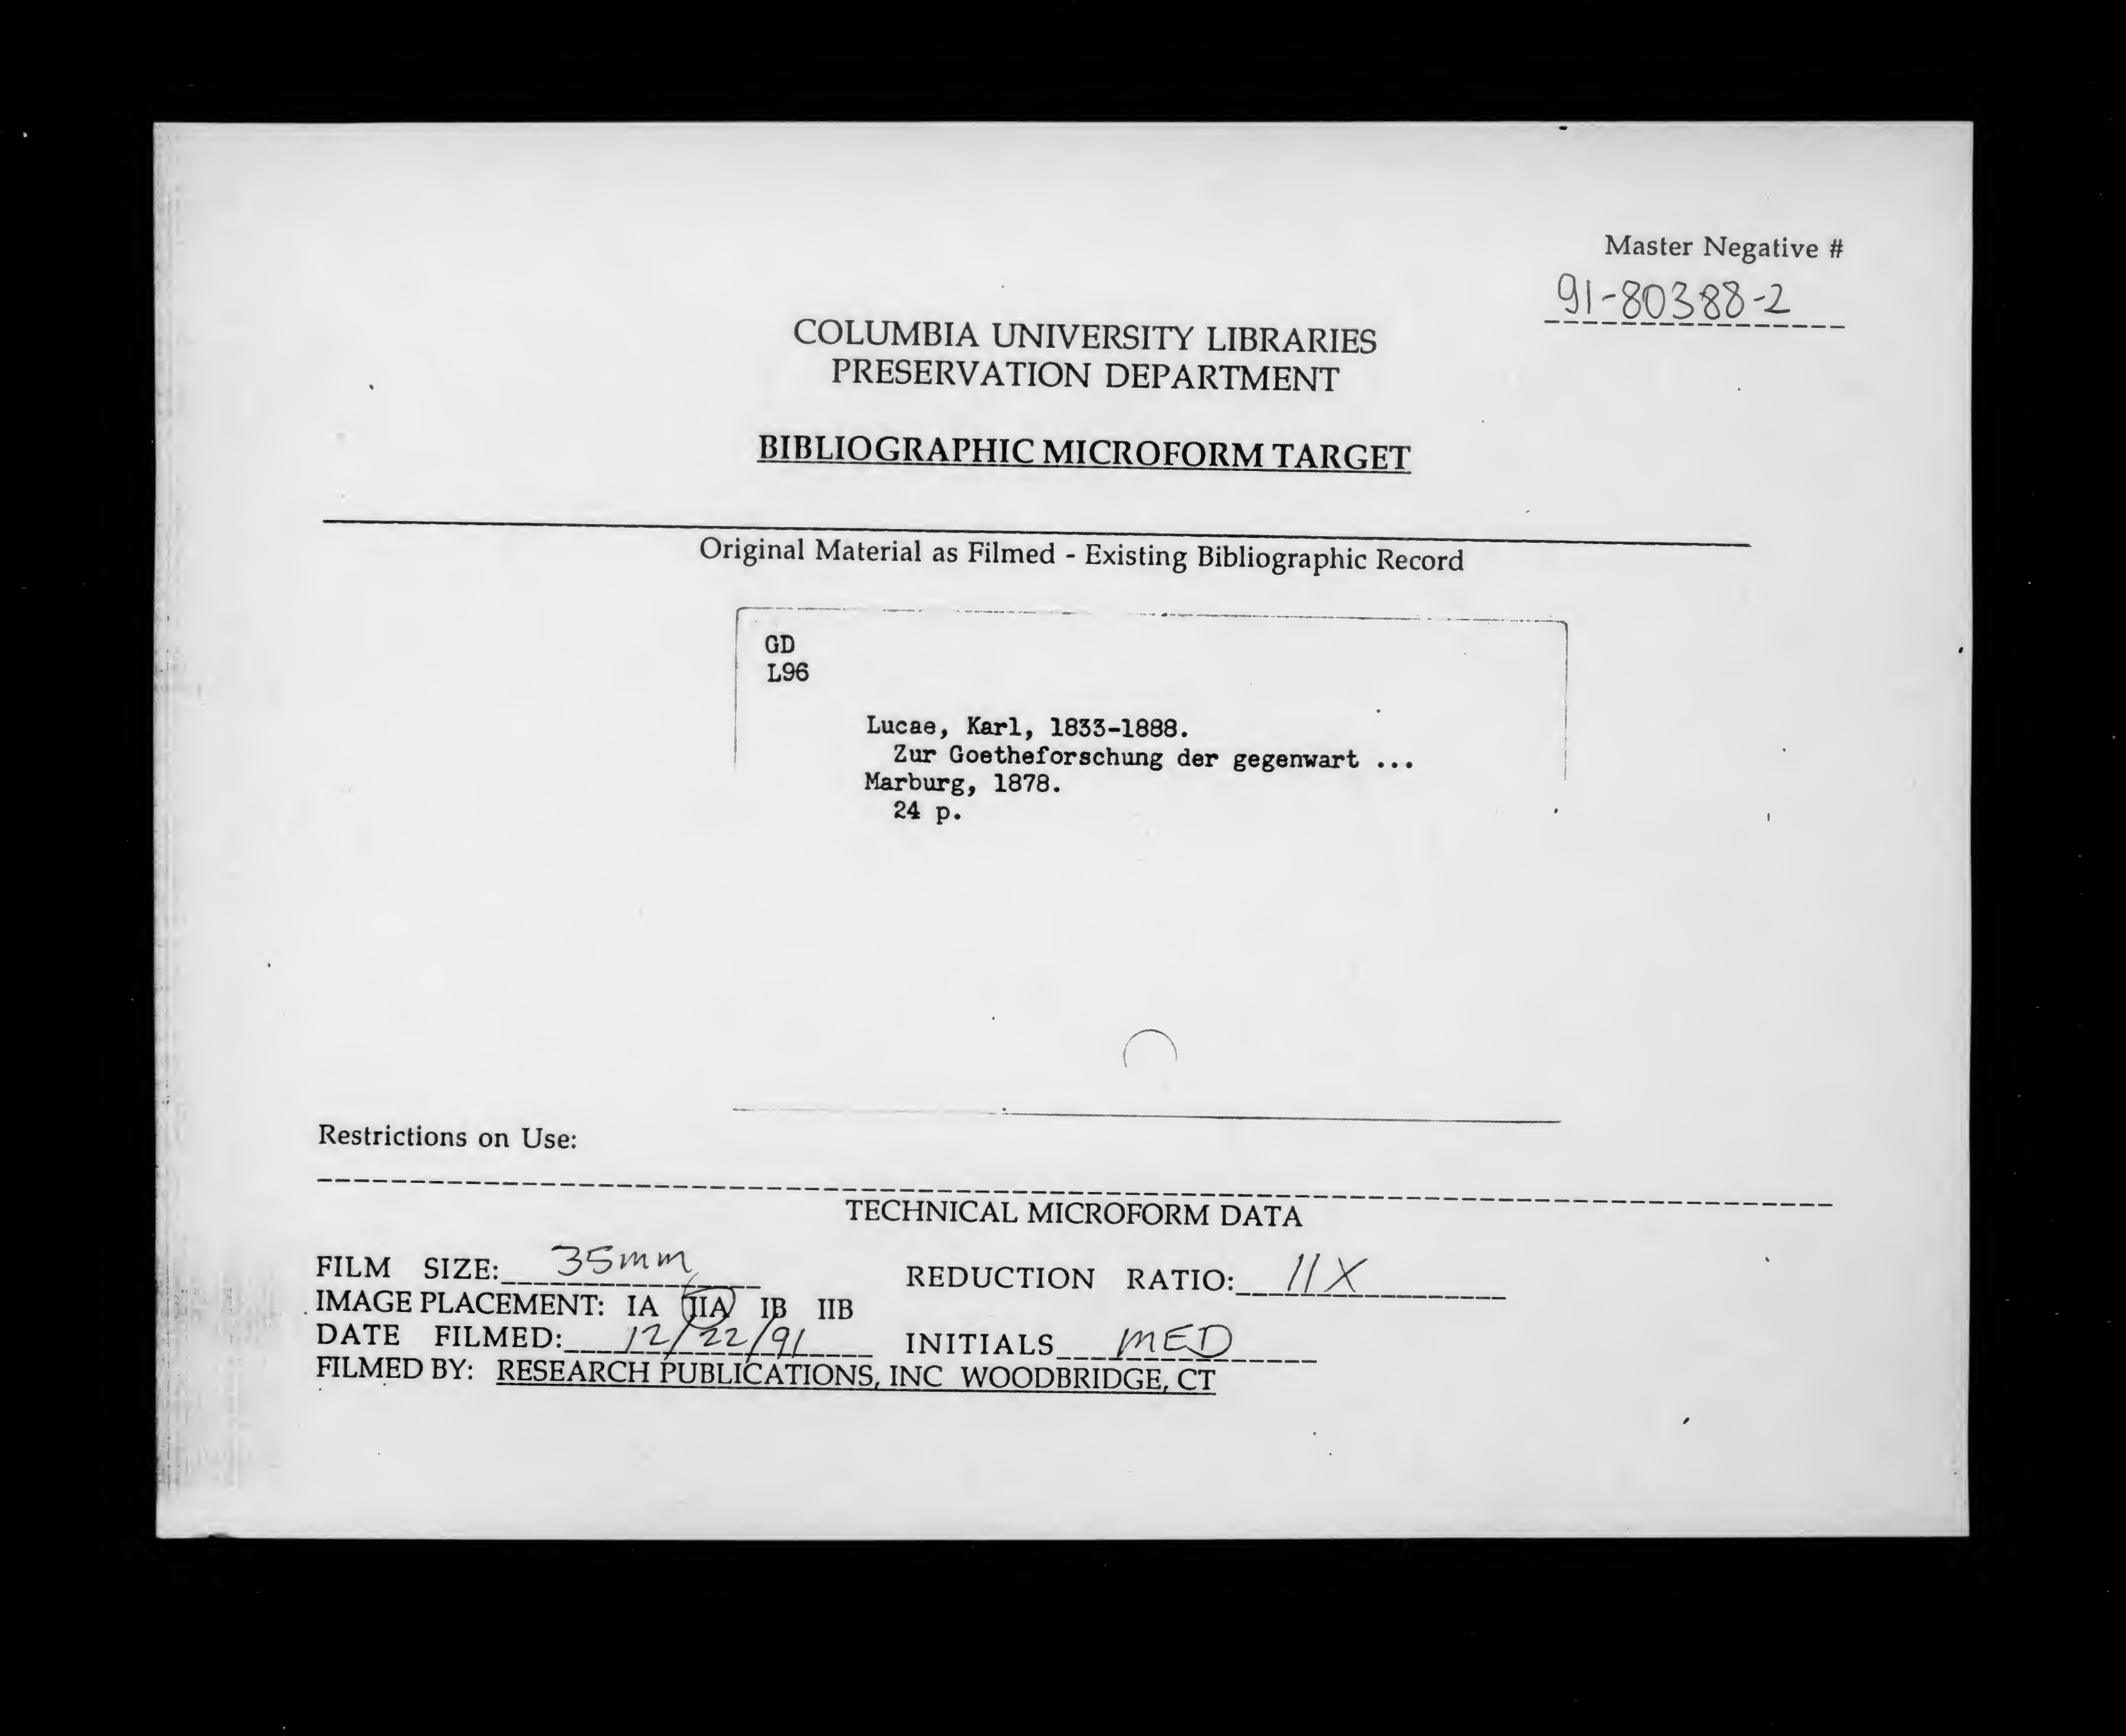 Master Negative #
91-80388-2
COLUMBIA UNIVERSITY LIBRARIES
PRESERVATION DEPARTMENT
BIBLIOGRAPHIC MICROFORM TARGET
Original Material as Filmed - Existing Bibliographic Record
GD
L96
Lucae, Karl, 1833-1888.
Zur Goetheforschung der gegenwart ...
Marburg, 1878.
24 p.
Restrictions on Use:
TECHNICAL MICROFORM DATA
FILM SIZE: 35mm REDUCTION RATIO: 11X
IMAGE PLACEMENT: IA IIA IB IIB
DATE FILMED: 12/22/91 INITIALS MED
FILMED BY: RESEARCH PUBLICATIONS, INC WOODBRIDGE, CT